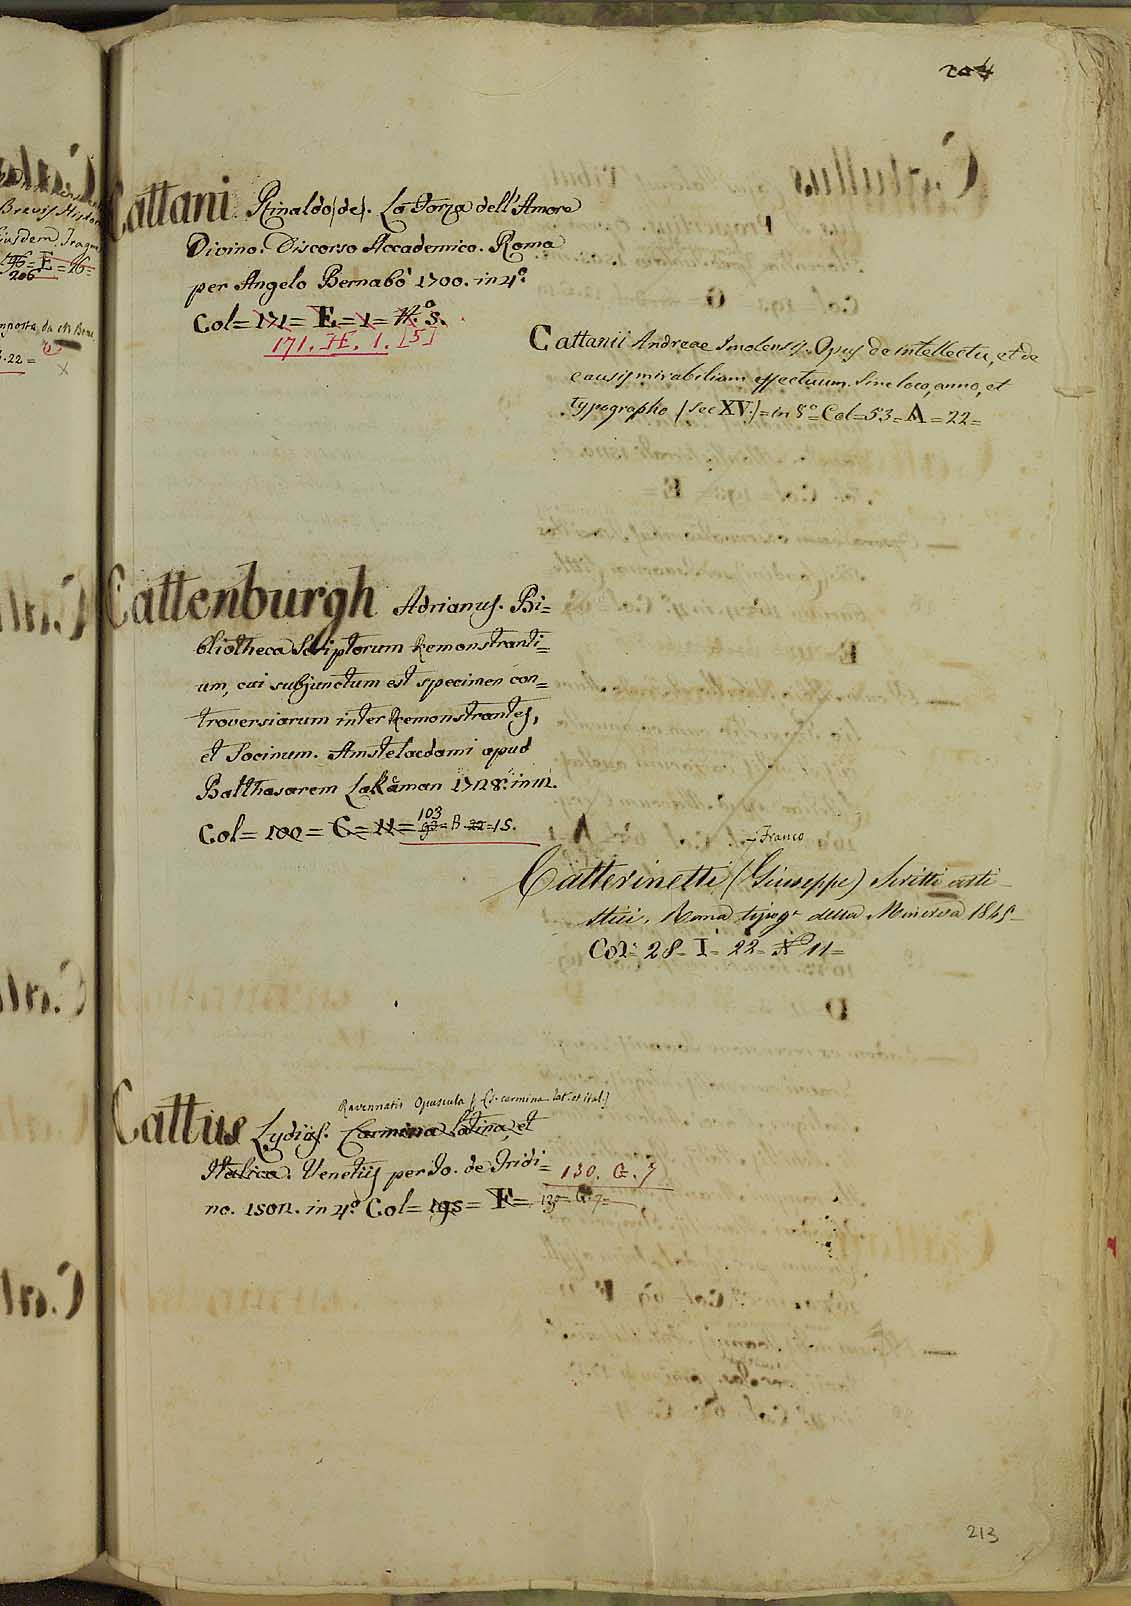 204
Cattani Rinaldo (de). La Forza dell'Amore
Divino. Discorso Accademico. Roma
per Angelo Bernabò 1700. in 4.º
Col = 171 = E = 1 = N.º 5.
171. E. 1. [5]
Cattanii Andreae Imolensis. Opus de intellectu, et de
causis mirabilium effectuum. Sine loco, anno, et
typographo (sec XV.) = in 8º = Col = 53 = A = 22 =
Cattenburgh Adrianus. Bi=
bliotheca Scriptorum Remonstranti=
um, cui subjunctum est specimen con=
troversiarum inter Remonstrantes,
et Socinum. Amstelaedami apud
Balthasarem Lakeman 1728. in 12.
103
Col = 100 = C = 11 = 93 = B 22 = 15.
- Franco
Catterinetti (Giuseppe) Scritti arti-
stici. Roma tipogr della Minerva 1845
Col: 28 = I = 22 = Nº 11 =
Ravennatis Opuscula (Cs. carmina lat. et ital.)
Cattus Lydius. Carmina latina, et
Italica. Venetiis per Jo. de Tridi=
130. G. 7
no. 1502. in 4.º Col = 195 = F = 130 = G. 7 =
213
Brevis Histor
Ejusdem Tragoe
146 = E = 16 =
206
mposta da M Bene
.22 =